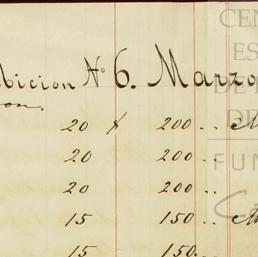 bicion Nº 6. Marzo
on.
20 $ 200..
20 200..
20 200..
15 150..
15 150..
CEN
ES
DE
FUN